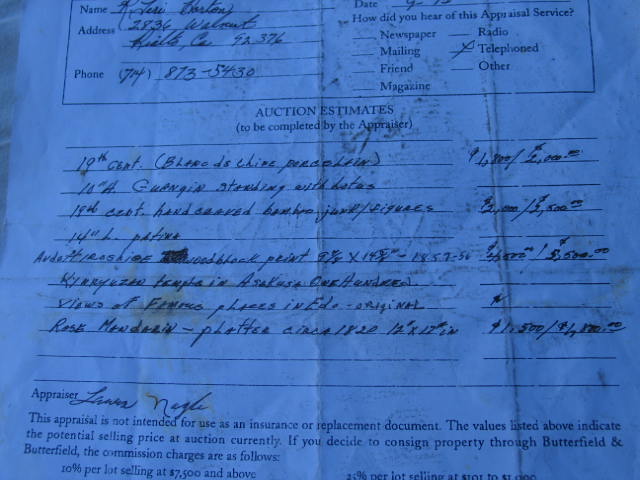 Name Teri Barton
Date
Address 2836 Walnut
Rialto, Ca 92376
How did you hear of this Appraisal Service?
Newspaper Radio
Mailing X Telephoned
Friend Other
Magazine
Phone (714) 873-5430
AUCTION ESTIMATES
(to be completed by the Appraiser)
19th Cent. (Blanc de Chine porcelain) $1,800/$2,000.00
10" H Guanyin standing with lotus
19th cent. hand carved bamboo junk/figures $2,000/$2,500.00
14" L. patina
Ando Hiroshige woodblock print 1857-56 $4,500/$5,500.00
Kinryuzan temple in Asakusa One Hundred
Views of Famous places in Edo - original $
Rose Mandarin - platter circa 1820 12"x17" in $1,500/$1,800.00
Appraiser Laura Nagle
This appraisal is not intended for use as an insurance or replacement document. The values listed above indicate
the potential selling price at auction currently. If you decide to consign property through Butterfield &
Butterfield, the commission charges are as follows:
10% per lot selling at $7,500 and above
25% per lot selling at $101 to $1,000